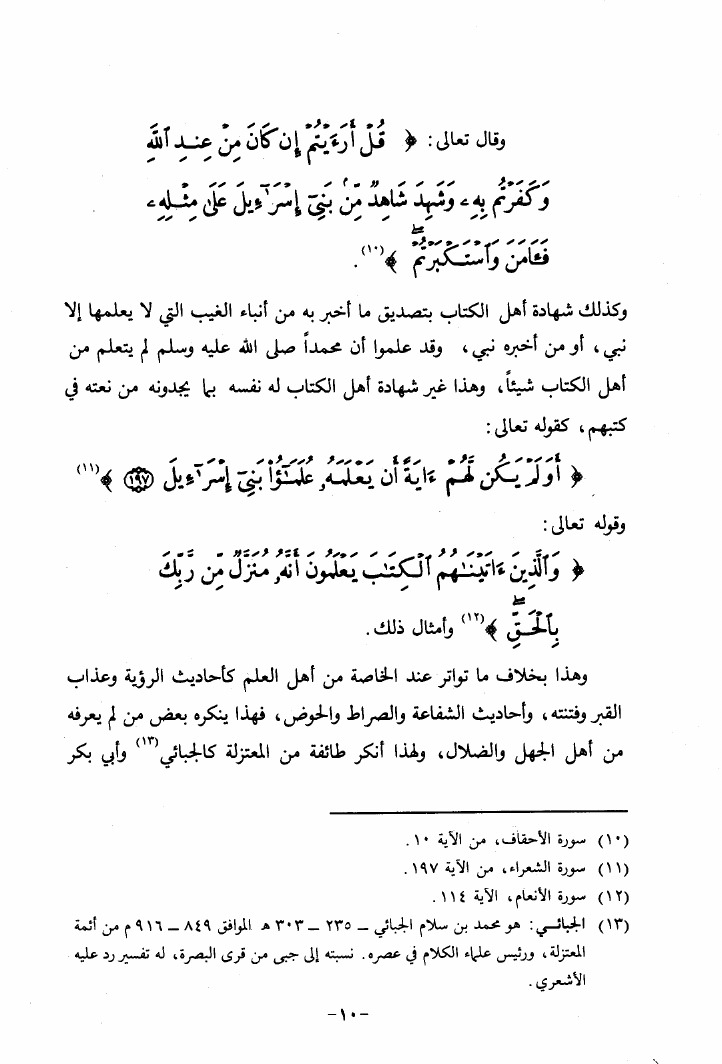 وقال تعالى: ﴿ قُلْ أَرَءَيْتُمْ إِن كَانَ مِنْ عِندِ ٱللَّهِ
وَكَفَرْتُم بِهِۦ وَشَهِدَ شَاهِدٌ مِّنۢ بَنِىٓ إِسْرَٰٓءِيلَ عَلَىٰ مِثْلِهِۦ
فَـَٔامَنَ وَٱسْتَكْبَرْتُمْ ۖ ﴾(١٠).
وكذلك شهادة أهل الكتاب بتصديق ما أخبر به من أنباء الغيب التي لا يعلمها إلا
نبي، أو من أخبره نبي، وقد علموا أن محمداً صلى الله عليه وسلم لم يتعلم من
أهل الكتاب شيئاً، وهذا غير شهادة أهل الكتاب له نفسه بما يجدونه من نعته في
كتبهم، كقوله تعالى:
﴿ أَوَلَمْ يَكُن لَّهُمْ ءَايَةً أَن يَعْلَمَهُۥ عُلَمَـٰٓؤُا۟ بَنِىٓ إِسْرَٰٓءِيلَ ١٩٧ ﴾(١١)
وقوله تعالى:
﴿ وَٱلَّذِينَ ءَاتَيْنَـٰهُمُ ٱلْكِتَـٰبَ يَعْلَمُونَ أَنَّهُۥ مُنَزَّلٌ مِّن رَّبِّكَ
بِٱلْحَقِّ ۖ ﴾(١٢) وأمثال ذلك.
وهذا بخلاف ما تواتر عند الخاصة من أهل العلم كأحاديث الرؤية وعذاب
القبر وفتنته، وأحاديث الشفاعة والصراط والحوض، فهذا ينكره بعض من لم يعرفه
من أهل الجهل والضلال، ولهذا أنكر طائفة من المعتزلة كالجبائي(١٣) وأبي بكر
(١٠) سورة الأحقاف، من الآية ١٠.
(١١) سورة الشعراء، من الآية ١٩٧.
(١٢) سورة الأنعام، الآية ١١٤.
(١٣) الجبائي: هو محمد بن سلام الجبائي – ٢٣٥ – ٣٠٣ هـ الموافق ٨٤٩ – ٩١٦ م من أئمة
المعتزلة، ورئيس علماء الكلام في عصره. نسبته إلى جبى من قرى البصرة، له تفسير رد عليه
الأشعري.
-١٠-